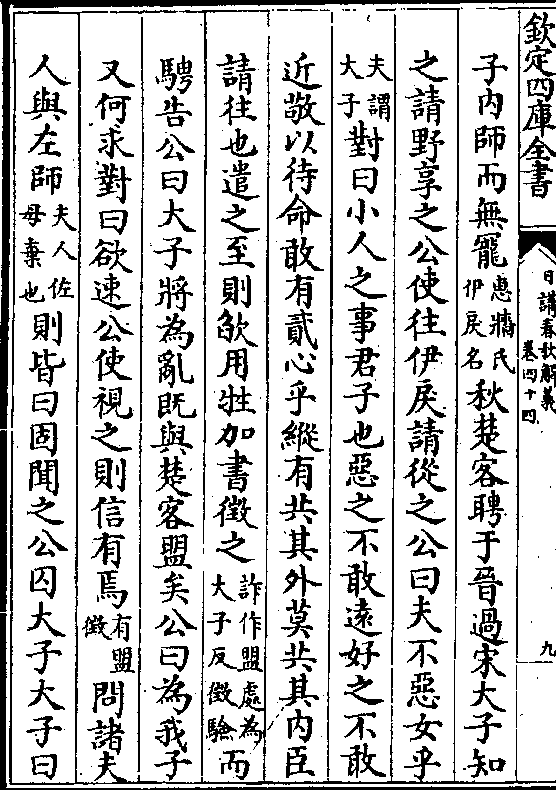 欽定四庫全書
日講春秋解義
卷四十四
九
子内師而無寵惠牆氏
伊戾名秋楚客聘于晉過宋大子知
之請野享之公使往伊戾請從之公曰夫不惡女乎
夫謂
大子對曰小人之事君子也惡之不敢遠好之不敢
近敬以待命敢有貳心乎縱有共其外莫共其内臣
請往也遣之至則欿用牲加書徵之詐作盟處為
大子反徵驗而
騁告公曰大子將為亂既與楚客盟矣公曰為我子
又何求對曰欲速公使視之則信有焉有盟
徵問諸夫
人與左師夫人佐
母棄也則皆曰固聞之公囚大子大子曰